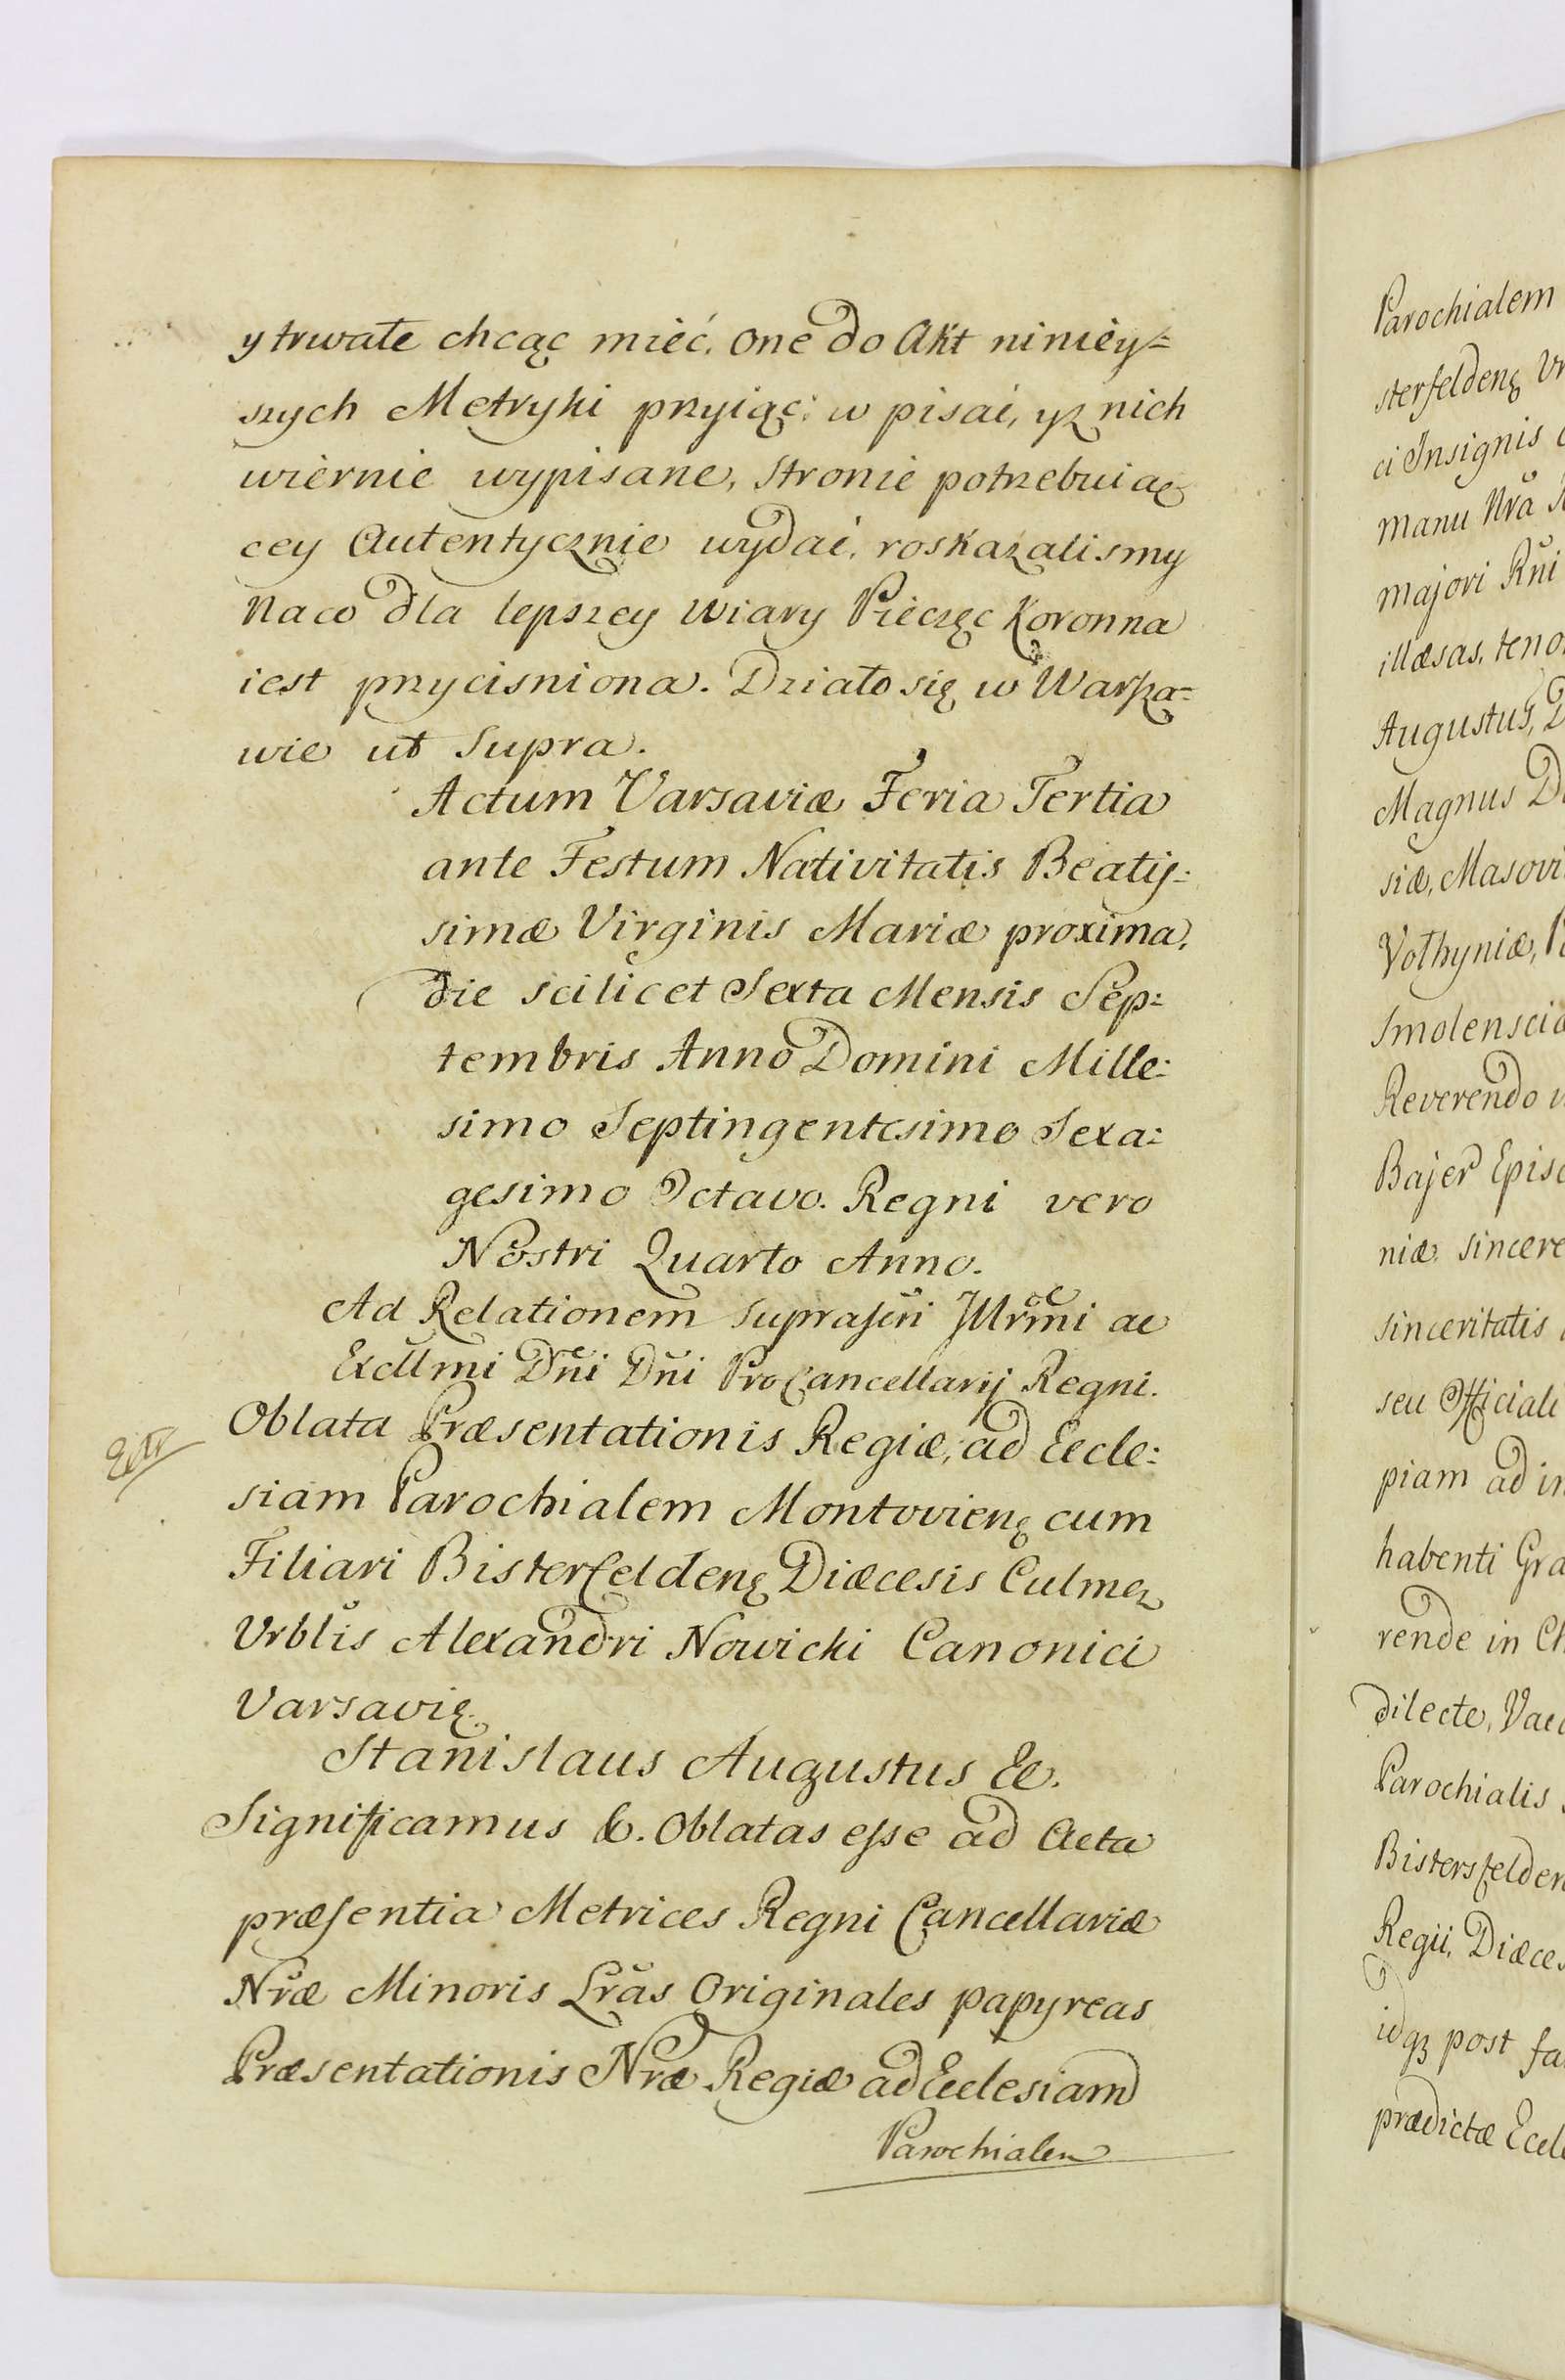 y trwałe chcąc mieć, one do Akt niniey=
szych Metryki przyiąć, w pisać, y z nich
wiernie wypisane, Stronie potrzebuią
cey Autentycznie wydać, roskazalismy
Na co dla lepszey wiary Pieczęć Koronna
iest przycisniona. Działo się w Warsza=
wie ut Supra.
Actum Varsaviæ Feria Tertia
ante Festum Nativitatis Beatis=
simæ Virginis Mariæ proxima,
die scilicet Sexta Mensis Sep=
tembris Anno Domini Mille=
simo Septingentesimo Sexa=
gesimo Octavo. Regni vero
Nostri Quarto Anno.
Ad Relationem suprascñi Illrmi ac
Excllmi Dñi Dñi ProCancellarij Regni.
Oblata Præsentationis Regiæ, ad Eccle=
siam Parochialem Montovienę cum
Filiari Bisterfeldenę Diæcesis Culmen
Vrblis Alexandri Nowicki Canonici
Varsavię.
Stanislaus Augustus &c.
Significamus &c. Oblatas esse ad Acta
præsentia Metrices Regni Cancellariæ
Nræ Minoris Lras Originales papyreas
Præsentationis Nræ Regiæ ad Ecclesiam
Parochialem
Parochialem
sterfeldenę Vr
ci Insignis
manu Nrã
majori Rñi
illæsas, teno
Augustus, D
Magnus D
siæ, Masovi
Volhyniæ,
Smolenscia
Reverendo
Bajer Episc
niæ, sincere
sinceritatis
seu Officiali
piam ad in
habenti Gra
rende in Ch
dilecte, Vac
Parochialis
Bistersfelden
Regii, Diæces
idq3 post fa
prædictæ Eccle